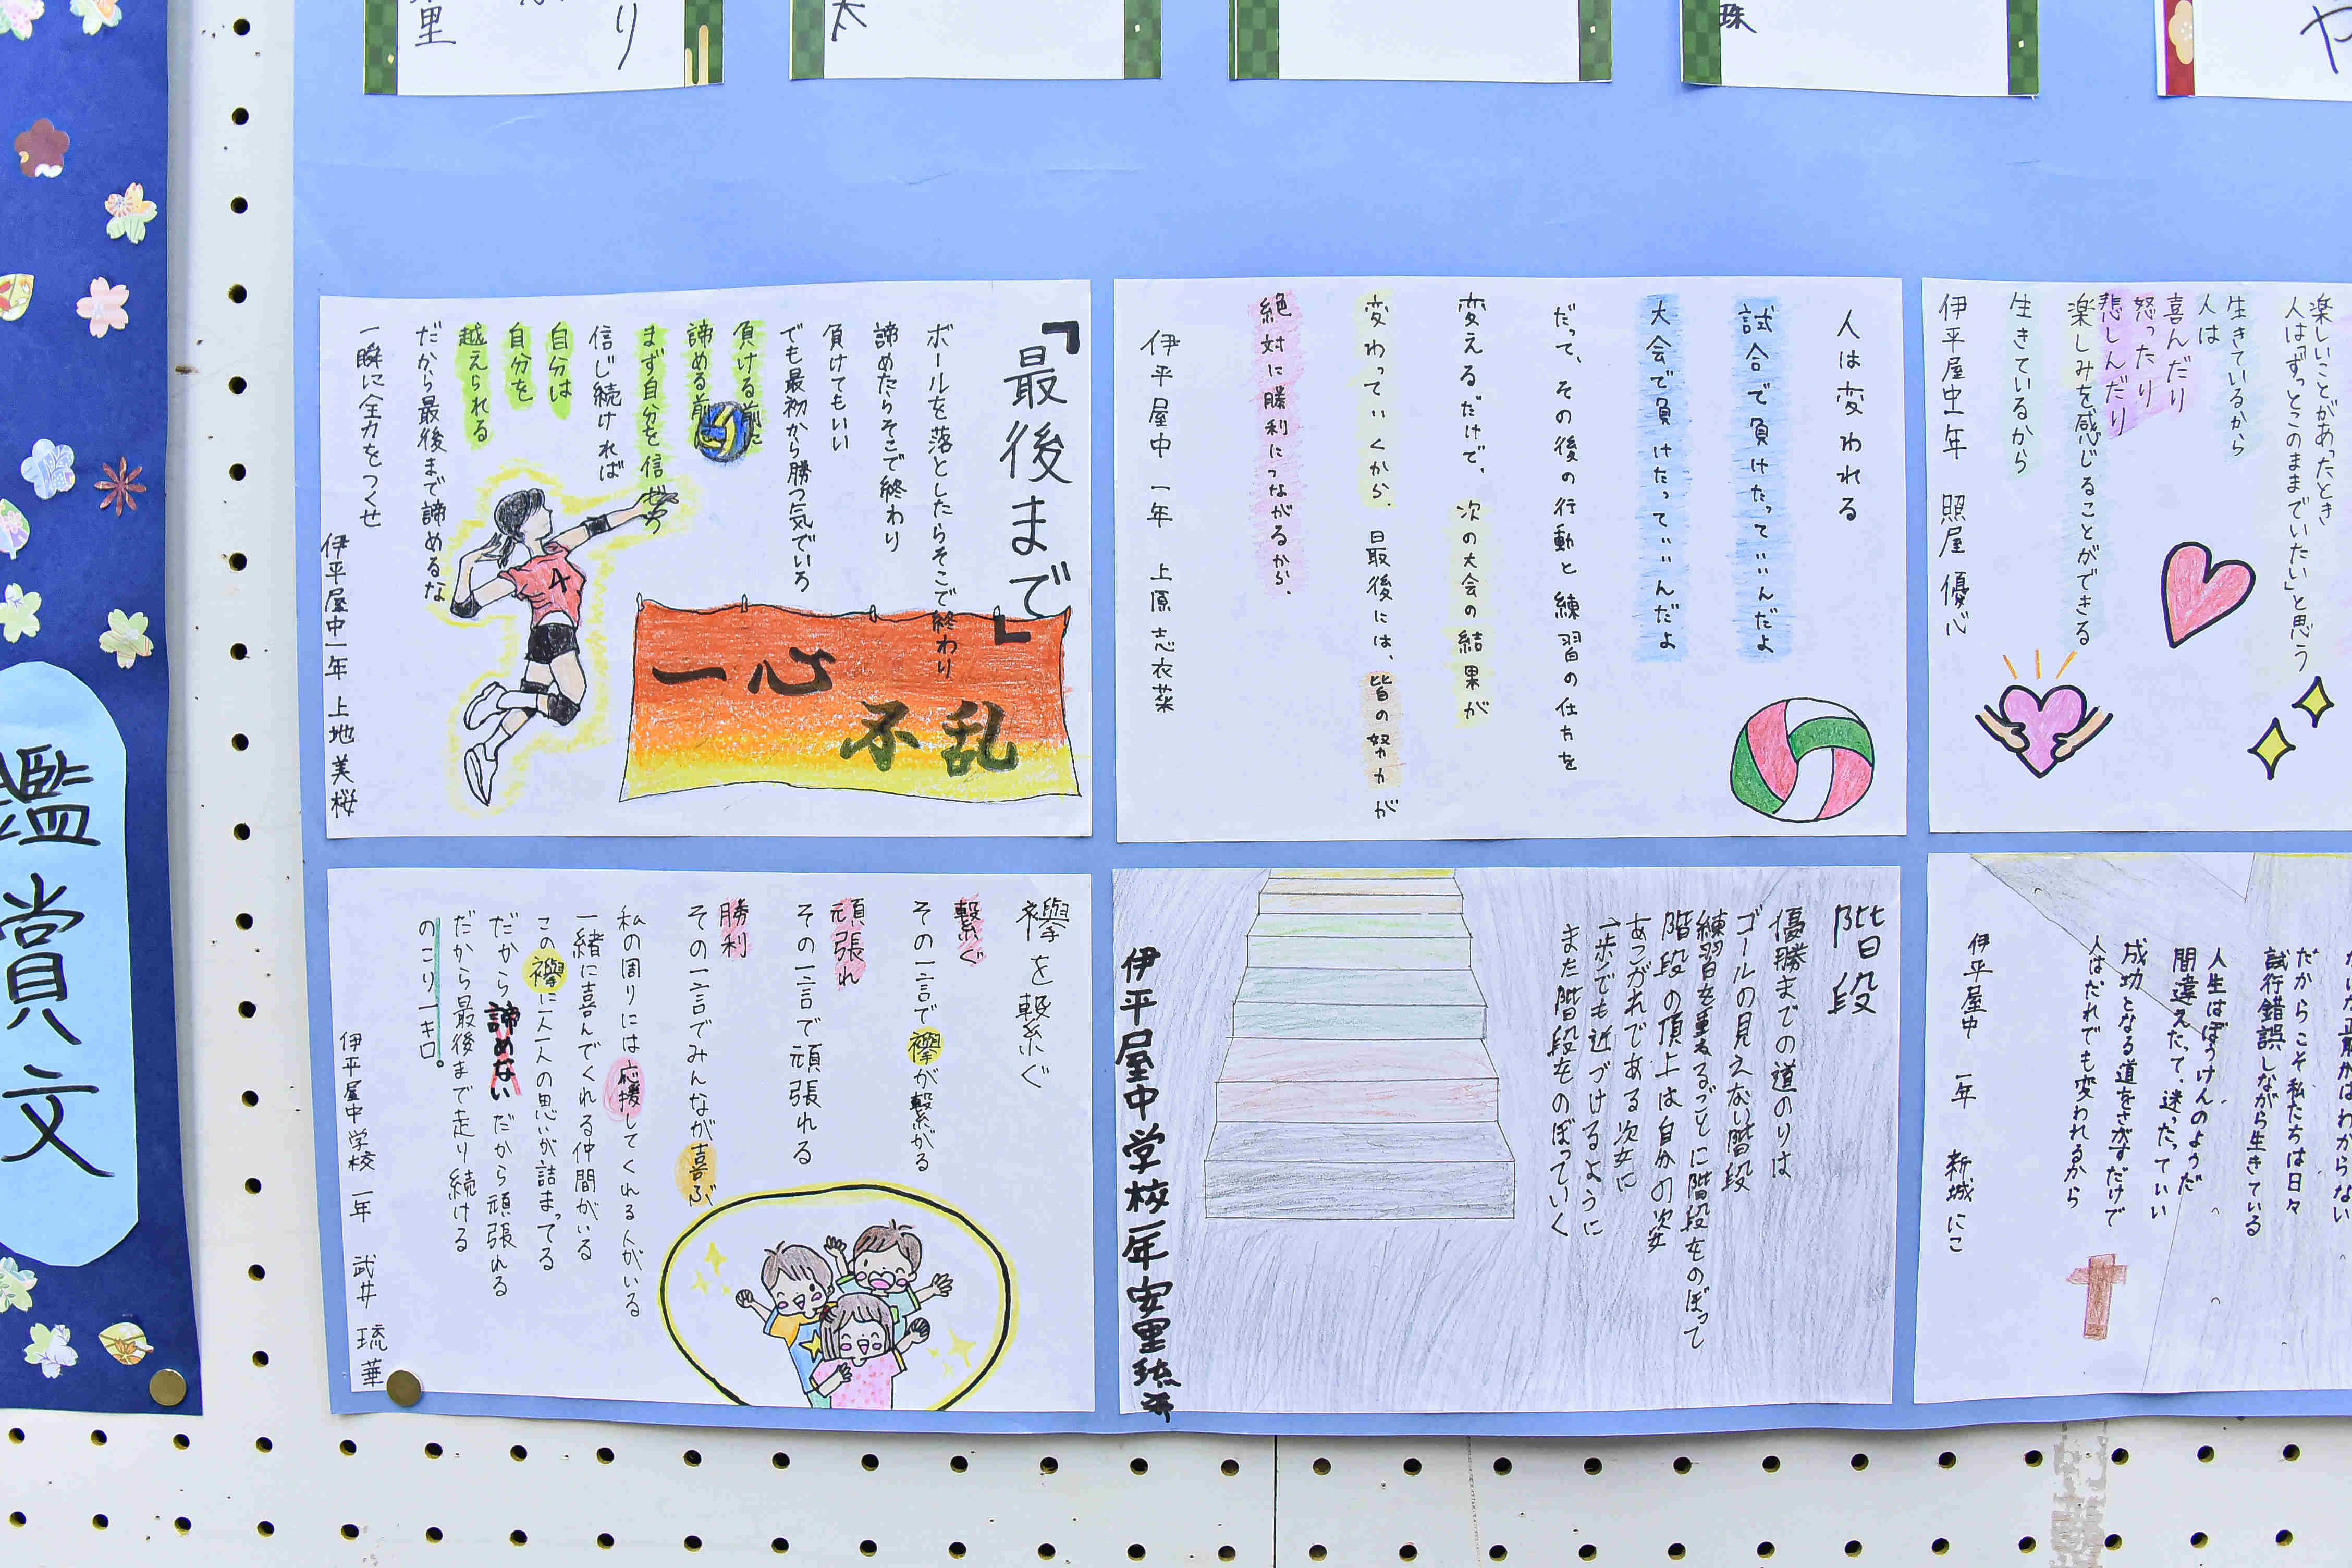 里
り
太
珠
や
鑑賞文
『最後まで』
ボールを落としたらそこで終わり
諦めたらそこで終わり
負けてもいい
でも最初から勝つ気でいろ
負ける前に
諦める前に
まず自分を信じろ
信じ続ければ
自分は
自分を
越えられる
だから最後まで諦めるな
一瞬に全力をつくせ
伊平屋中一年 上地美桜
一心
不乱
4
人は変われる
試合で負けたっていいんだよ
大会で負けたっていいんだよ
だって、その後の行動と練習の仕方を
変えるだけで、次の大会の結果が
変わっていくから、最後には、皆の努力が
絶対に勝利につながるから、
伊平屋中 一年 上原志衣菜
楽しいことがあったとき
人は「ずっとこのままでいたい」と思う
生きているから
人は
喜んだり
怒ったり
悲しんだり
楽しみを感じることができる
生きているから
伊平屋中一年 照屋優心
襷を繋ぐ
繋ぐ
その一言で襷が繋がる
頑張れ
その一言で頑張れる
勝利
その一言でみんなが喜ぶ
私の周りには応援してくれる人がいる
一緒に喜んでくれる仲間がいる
この襷に一人一人の思いが詰まってる
だから諦めないだから頑張れる
だから最後まで走り続ける
のこり一キロ。
伊平屋中学校 一年 武井 琉華
階段
優勝までの道のりは
ゴールの見えない階段
練習を重ねるごとに階段をのぼって
階段の頂上は自分の次女
あこがれである次女に
一歩でも近づけるように
また階段をのぼっていく
伊平屋中学校一年 安里琉
だからこそ私たちは日々
試行錯誤しながら生きている
人生はぼうけんのようだ
間違えたって、迷ったっていい
成功となる道をさがすだけで
人はだれでも変われるから
伊平屋中 一年 新城にこ